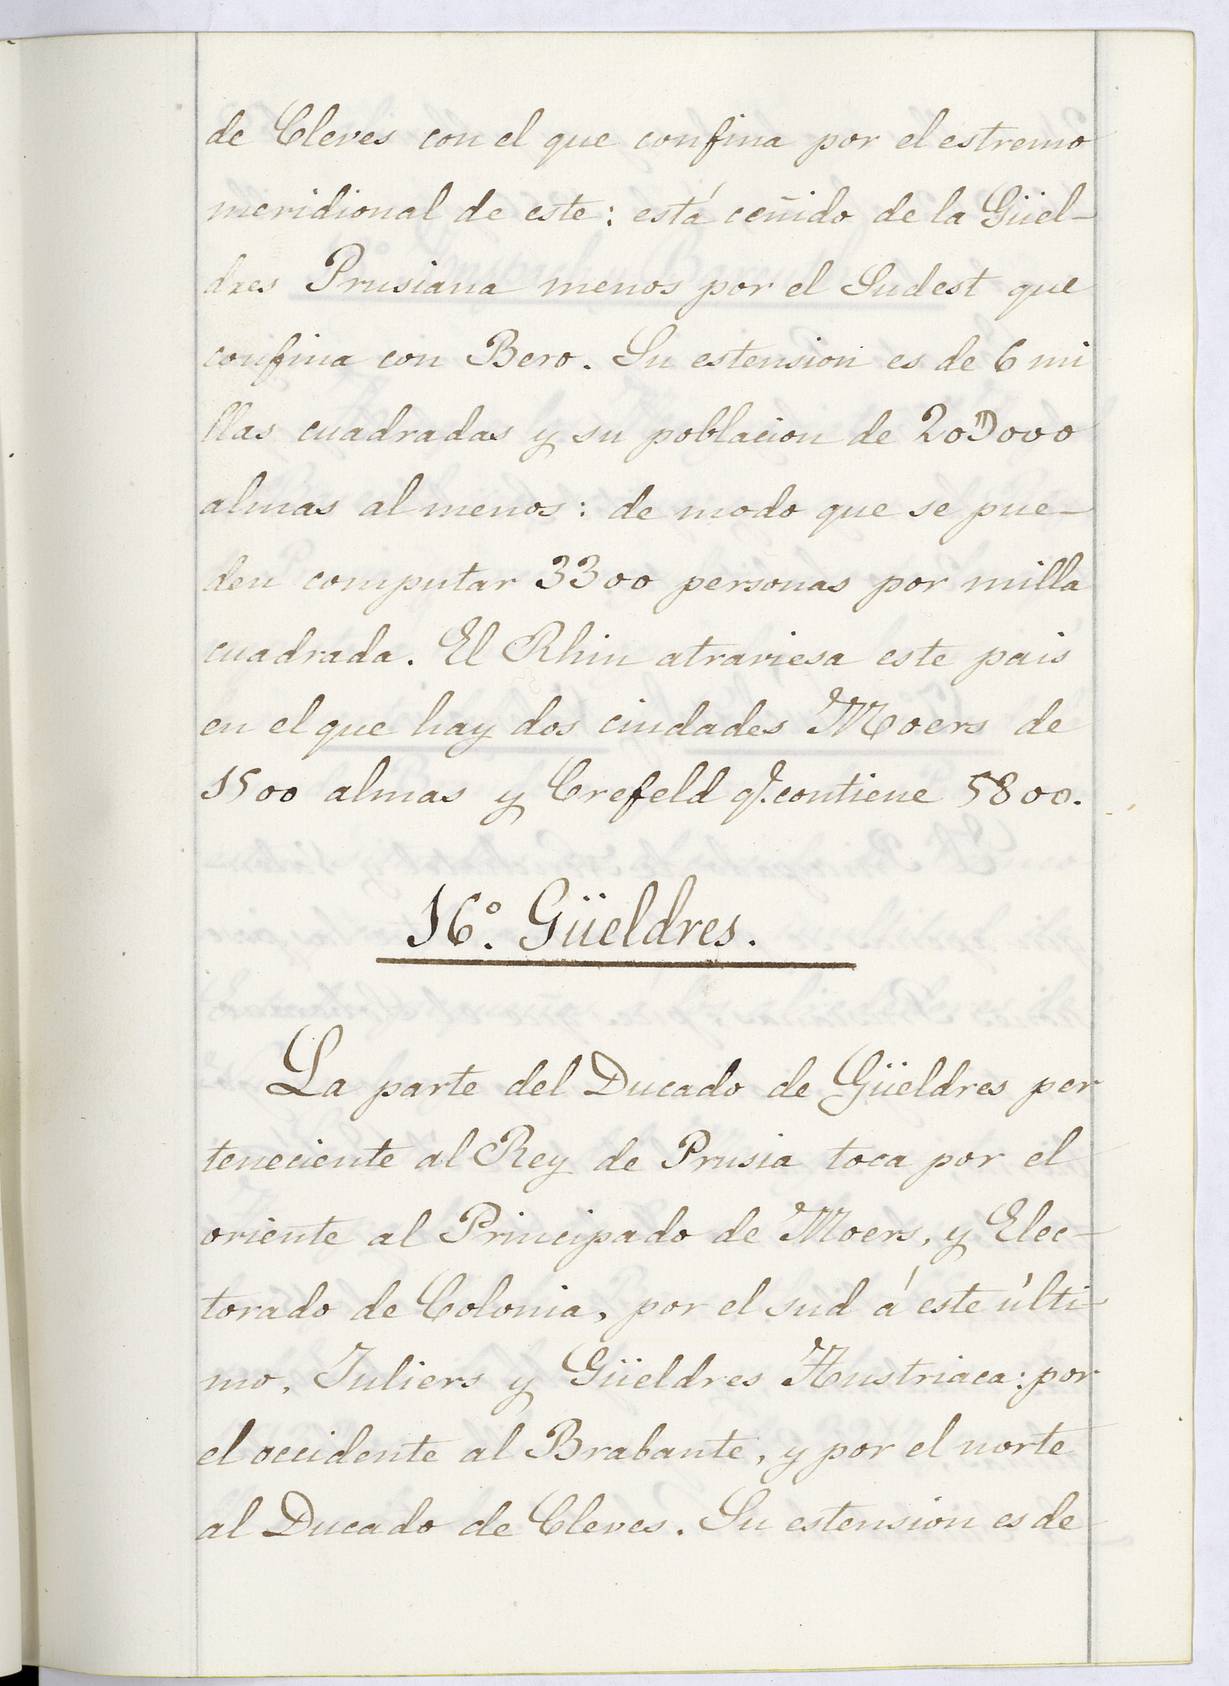 de Cleves con el que confina por el estremo
meridional de este: está ceñido de la Güel-
dres Prusiana menos por el Sudest que
confina con Bero. Su estension es de 6 mi
llas cuadradas y su poblacion de 20D000
almas al menos: de modo que se pue-
den computar 3300 personas por milla
cuadrada. El Rhin atraviesa este pais
en el que hay dos ciudades Moers de
1500 almas y Crefeld q.e contiene 5800.
16.º Güeldres.
La parte del Ducado de Güeldres per
teneciente al Rey de Prusia toca por el
oriente al Principado de Moers, y Elec-
torado de Colonia, por el sud á este últi-
mo, Juliers y Güeldres Austriaca: por
el occidente al Brabante, y por el norte
al Ducado de Cleves. Su estension es de